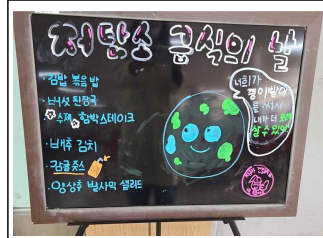 저탄소 급식의 날
· 김밥 볶음밥
· 버섯 된장국
· 수제 함박스테이크
· 배추 김치
· 감귤쥬스
· 양상추 발사믹 샐러드
너희가
종이빨대
를 써서
내가 더
살 수 있어!